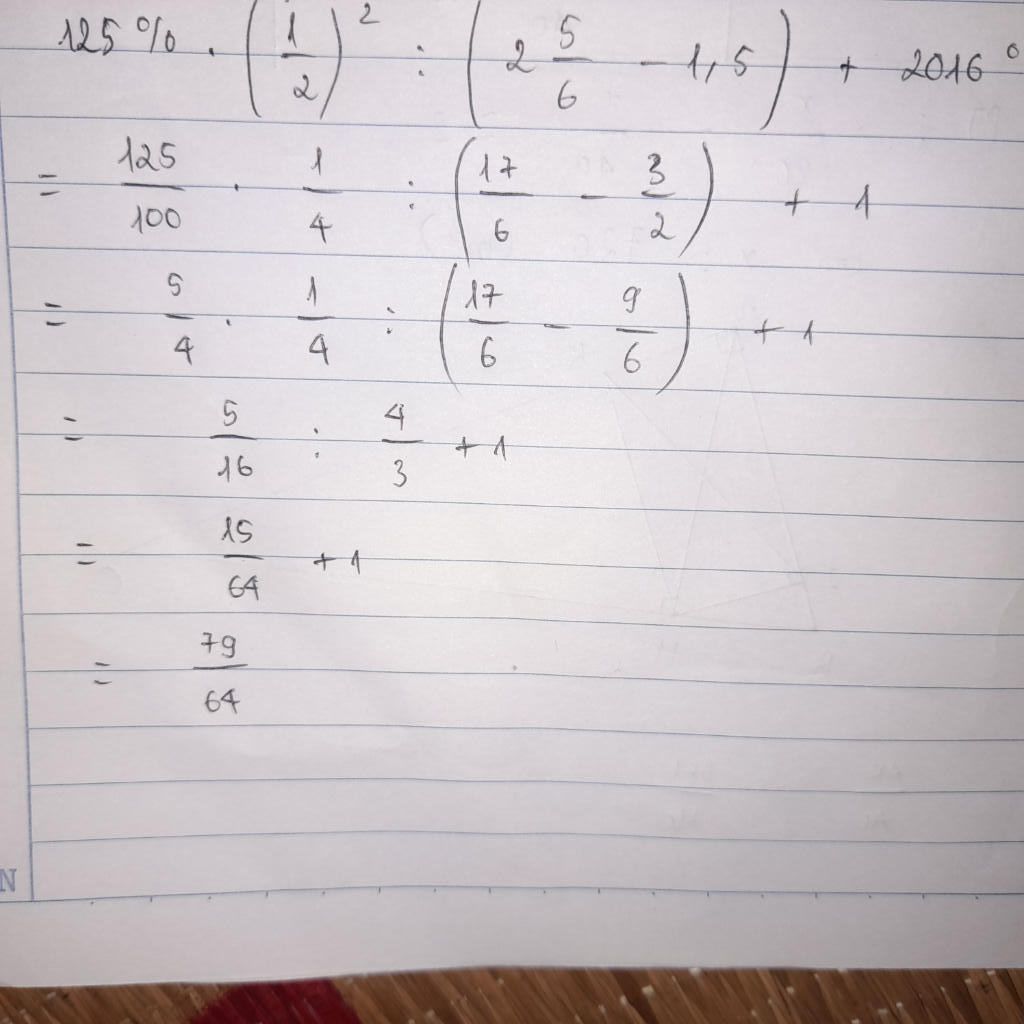 125 % . (1/2)² : (2 5/6 - 1,5) + 2016⁰
= 125/100 . 1/4 : (17/6 - 3/2) + 1
= 5/4 . 1/4 : (17/6 - 9/6) + 1
= 5/16 : 4/3 + 1
= 15/64 + 1
= 79/64
N